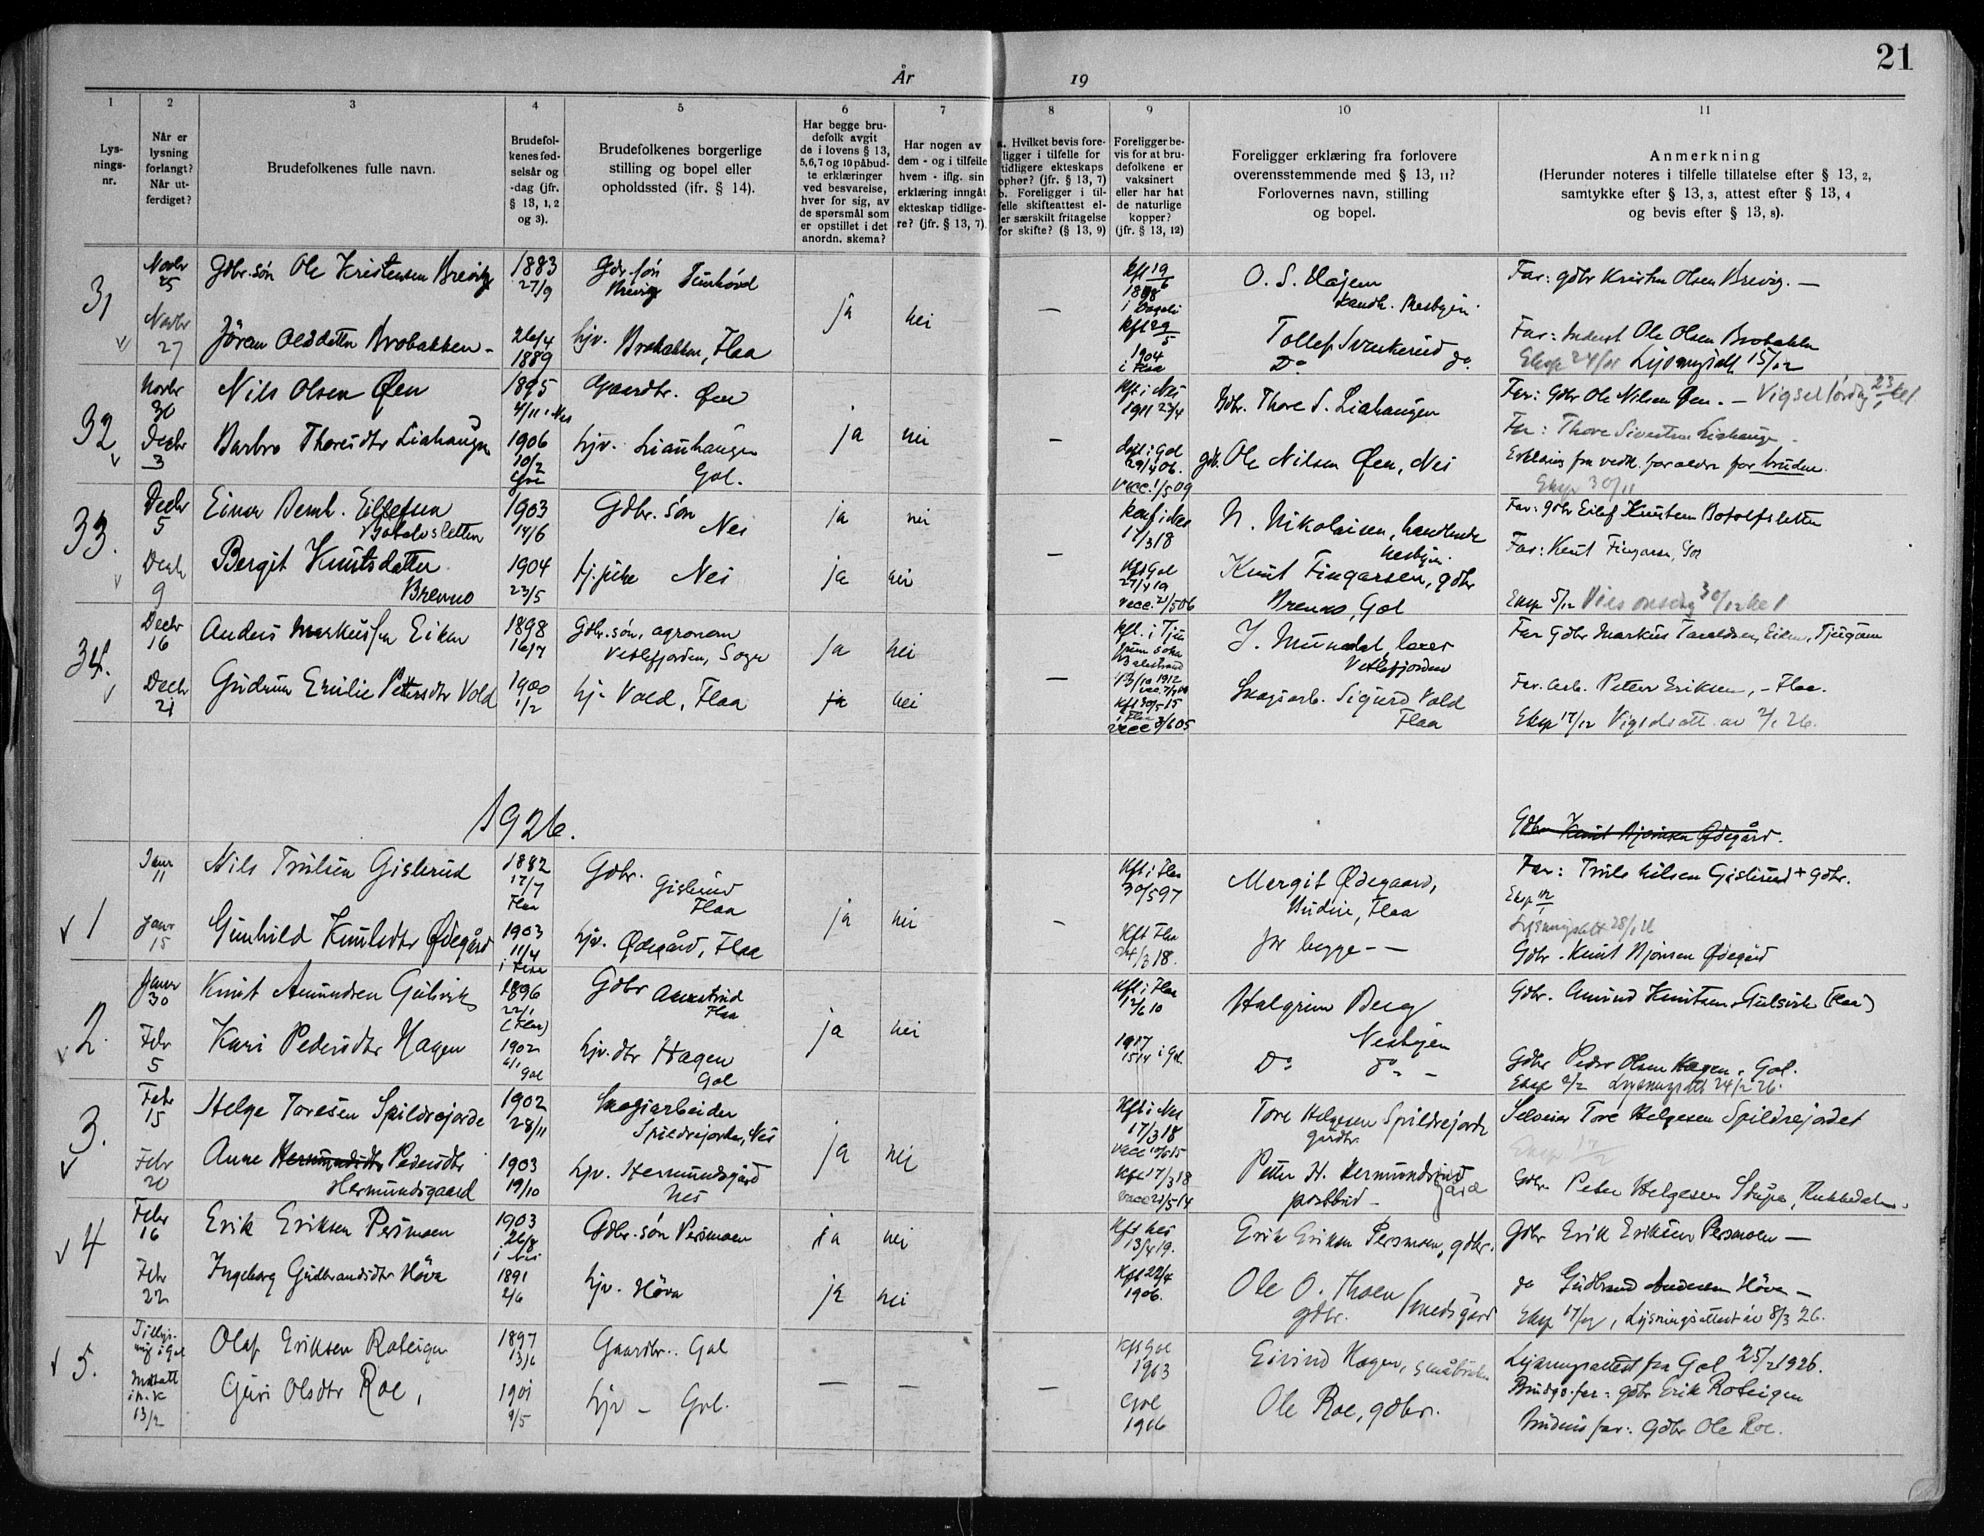 21
År 19
1 2 3 4 5 6 7 8 9 10 11
Lys-
nings-
nr.
Når er
lysning
forlangt?
Når ut-
ferdiget?
Brudefolkenes fulle navn.
Brudefol-
kenes fød-
selsår og
-dag (jfr.
§ 13, 1, 2
og 3).
Brudefolkenes borgerlige
stilling og bopel eller
opholdssted (ifr. § 14).
Har begge bru-
defolk avgit
de i lovens § 13,
5,6,7 og 10 påbud-
te erklæringer
ved besvarelse,
hver for sig, av
de spørsmål som
er opstillet i det
anordn. skema?
Har nogen av
dem - og i tilfelle
hvem - iflg. sin
erklæring inngåt
ekteskap tidlige-
re? (jfr. § 13, 7).
a. Hvilket bevis fore-
ligger i tilfelle for
tidligere ekteskaps
ophør? (jfr. § 13, 7)
b. Foreligger i til-
felle skifteattest el-
ler særskilt fritagelse
for skifte? (§ 13, 9)
Foreligger be-
vis for at bru-
defolkene er
vaksinert
eller har hat
de naturlige
kopper?
(jfr. § 13, 12)
Foreligger erklæring fra forlovere
overensstemmende med § 13, 11?
Forlovernes navn, stilling
og bopel.
Anmerkning
(Herunder noteres i tilfelle tillatelse efter § 13, 2,
samtykke efter § 13, 3, attest efter § 13, 4
og bevis efter § 13, 8).
31 Novbr 25 Gdbr. søn Ole Kristensen Brevig 1883 27/9 Gdbr. søn Brevig Tunhövd ja nei — kft 19/6 1898 O. S. Far: gdbr Kristen Olsen Brevig. —
Novbr 27 Jöran Olsdatter Brobakken - 26/4 1889 hjv. Brobakken, Flaa kft 29/5 1904 i Flaa Tollef Svenkerud Do do. Far: Inderst Ole Olsen Brobakken
Eksp 24/11 Lysningsatt 15/12
32 Novbr 30 Nils Olsen Øen 1895 4/11 i Nes Gaardbr. Øen ja nei — kft i Nes 1911 Gdbr. Thore S. Liahaugen Far: Gdbr Ole Nilsen Øen. — Vigsel lördag
Decbr 3 Barbro Thoresdtr Liahaugen 1906 10/2 Gol hjv. Liauhaugen Gol. döpt i Gol 29/4 06. vacc. 1/5 09 gdb. Ole Nilsen Øen, Nes Far: Thore Sivertsen Liahaugen.
Erklæring fra vedk. foraldre for bruden.
Eksp 30/11
33. Decbr 5 Einar Bernh. Eilefsen Botolvsletten 1903 14/6 Gdbr. søn Nes ja nei — konf i Nes 17/3 18 N. Nikolaisen, handlende Nesbyen. Far: gdbr Eilef Knutsen Botolfsletten
Decbr 9 Bergit Knutsdatter Brenno 1904 23/5 tj. pike Nes ja nei kft Gol 27/4 19 vacc. 21/5 06 Knut Fingarsen, gdbr Brenno, Gol Far: Knut Fingarsen, Gol
Eksp 5/12 Vies onsdag 30/12 kl 1
34. Decbr 16 Anders Markussen Eiken 1898 16/7 Gdbr. søn, agronom Vetlefjorden, Sogn ja nei — kft. i Tjugum Sokn Balestrand 13/10 1912 J. Mundal, lærer Vetlefjorden Far Gdbr Markus Taraldsen Eiken, Tjugum
Decbr 21 Gudrun Emilie Pettersdtr Vold 1900 1/2 hj. Vold, Flaa ja nei kft 30/5 15 i Flaa vacc 3/6 05 Skogsarb. Sigurd Vold Flaa Far. Arb. Petter Eriksen, - Flaa.
Eksp 17/12 Vigselsatt. av 2/1 26.
1926.
Gdbr Knut Bjørnsen Ødegård.
1 Janr 11 Nils Trulsen Gislerud 1882 17/7 Flaa Gdbr. Gislerud Flaa ja nei - Kft i Flaa 30/5 97 Mergit Ødegaard, Budeie, Flaa Far: Truls Nilsen Gislerud + gdbr.
Janr 15 Gunhild Knutsdtr Ødegård 1903 11/4 i Flaa hjv. Ødegård, Flaa Kft Flaa 24/3 18. for begge — — Lysningsatt 28/1 26
Gdbr. Knut Bjørnsen Ødegård
2. Janr 30 Knut Amundsen Gulsvik 1896 22/1 (Flaa) Gdbr Flaa ja nei kft i Flaa 12/6 10 Halgrim Berg Nesbyen Gdbr. Amund Knutsen Gulsvik (Flaa)
Febr 5 Kari Pedersdtr Hagen 1902 6/1 Gol hjv. dtr Hagen Gol 1917 15/4 i Gol. Do Do - Gdbr Peder Olsen Hagen, Gol.
Eksp 2/2 Lysningsatt 24/2 26.
3. Febr 15 Helge Toresen Spildrejorde 1902 28/11 Skogsarbeider Spildrejorden, Nes ja nei Kft i Nes 17/3 18 Tore Helgesen Spildrejorde gardbr. Selveier Tore Helgesen Spildrejordet
Febr 20 Anne Hermundsdtr Pedersdtr Hermundsgaard 1903 19/10 hjv. Hermundsgård Nes kft 17/3 18 vacc 21/5 14 Petter H. Hermundsgård postbud - Gdbr. Peter Helgesen
4 Febr 16 Erik Eriksen Persmoen 1903 26/8 i Nes Gdbr. søn Persmoen ja nei Kft Nes 13/4 19. Erik Eriksen Persmoen, gdbr. Gdbr Erik Eriksen Persmoen —
Febr 22 Ingeborg Gudbrandsdtr Höva 1891 2/6 hjv. Höva ja nei Kft 22/4 1906. Ole O. Thoen gdbr. Smedsgård do Gudbrand Andersen Höva —
Eksp 17/2, Lysningsattest av 8/3 26.
5. Tillys-
ning i Gol Olaf Eriksen Roteigen 1897 13/6 Gaardbr. Gol — — — Kft Gol 1913 Eivind Hagen, småbruker Lysningsattest fra Gol 25/2 1926.
13/2 Guri Olsdtr Roe, 1901 9/5 hjv — Gol. Gol 1916 Ole Roe, gdbr. Brudgs. far: gdbr Erik Roteigen
Brudens far: Gdbr Ole Roe.